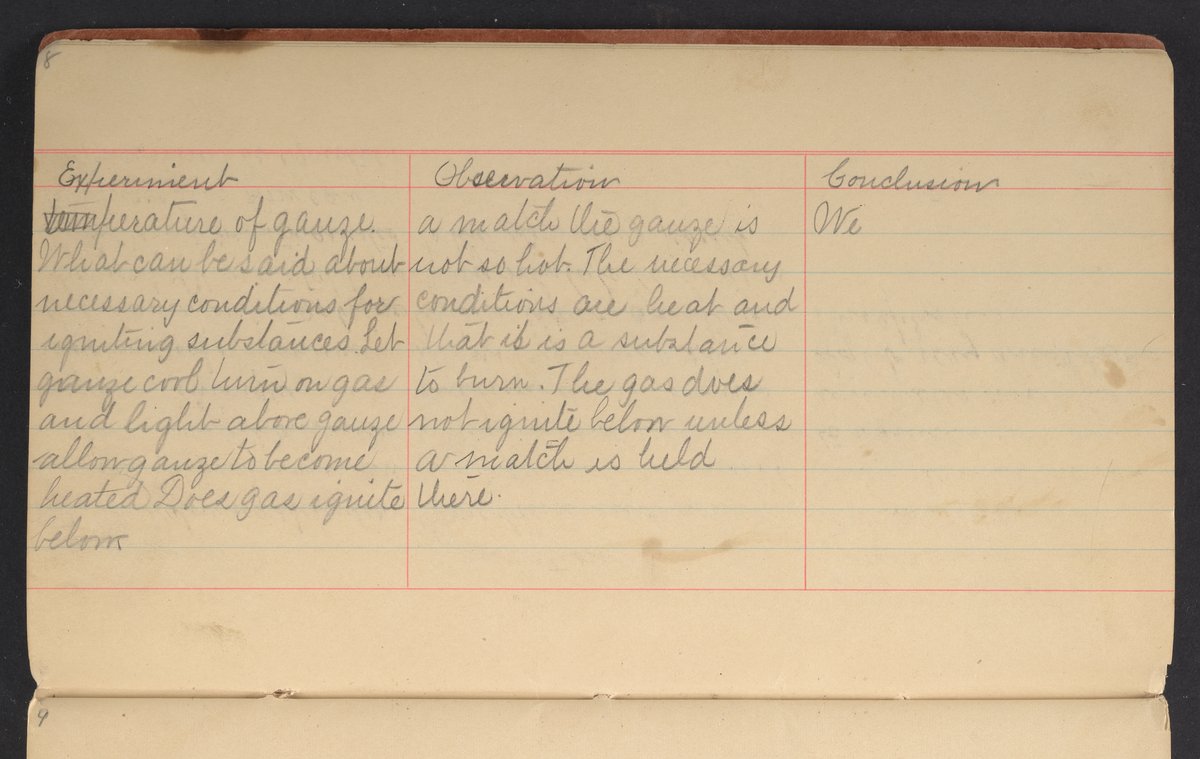 8
Experiment
temperature of gauze.
What can be said about
necessary conditions for
igniting substances. Let
gauze cool turn on gas
and light above gauze
allow gauze to become
heated Does gas ignite
below
Observation
a match the gauze is
not so hot. The necessary
conditions are heat and
that is is a substance
to burn. The gas does
not ignite below unless
a match is held
there.
Conclusion
We
9